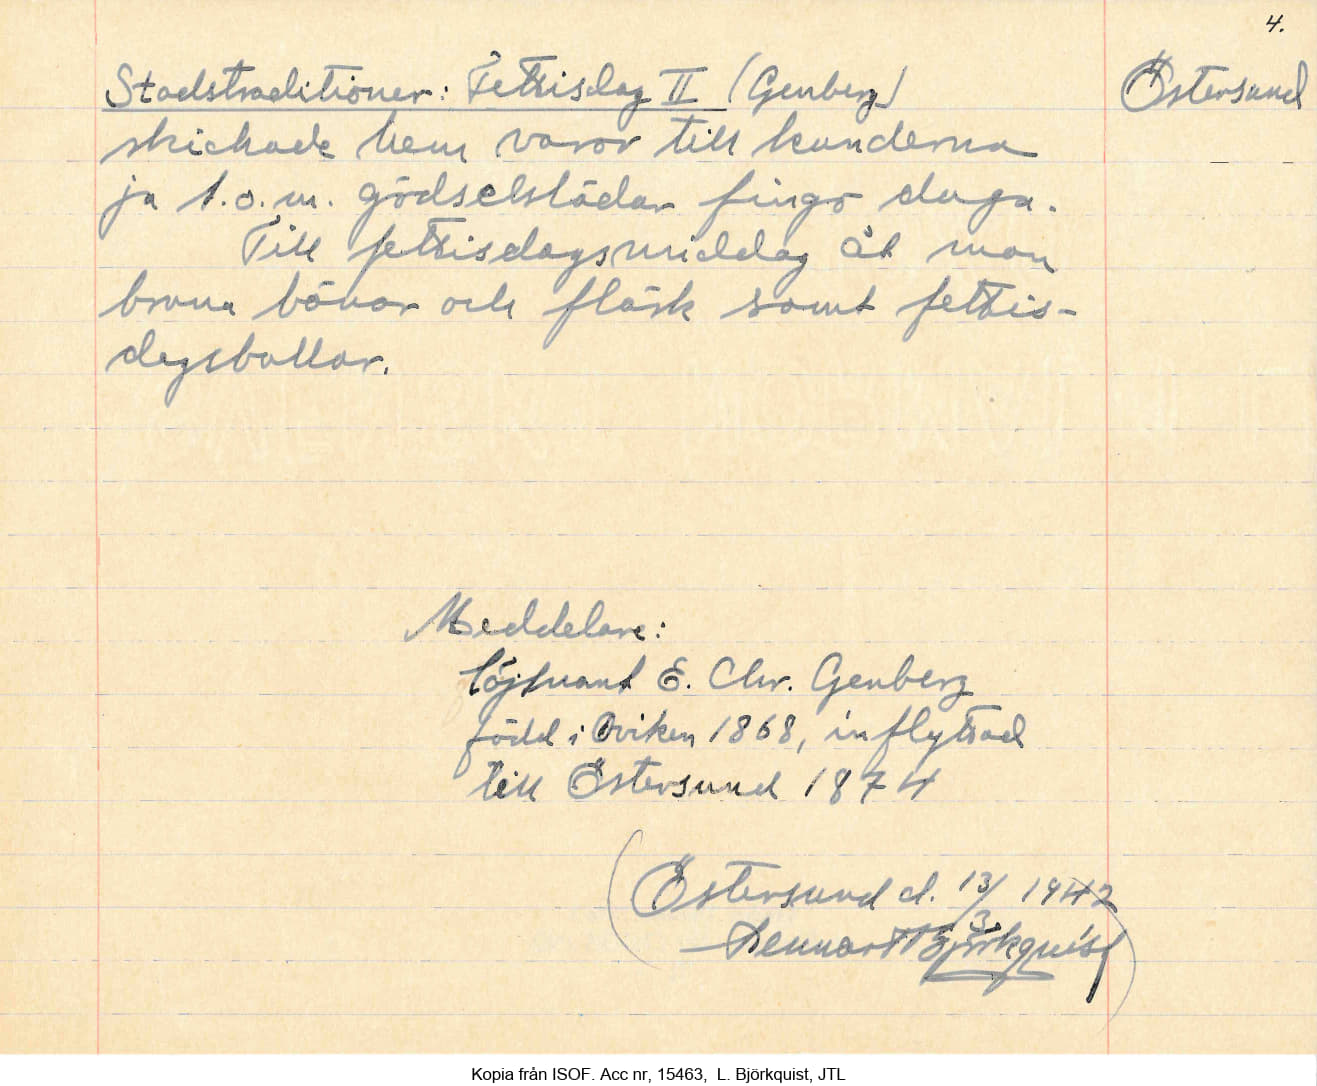 4.
Stadstraditioner: Fettisdag II (Genberg) Östersund
skickade hem varor till kunderna
ja t.o.m. gödselslädar fingo duga.
Till fettisdagsmiddag åt man
bruna bönor och fläsk samt fettis-
dagsbullar.
Meddelare:
löjtnant E. Chr. Genberg
född i Oviken 1868, inflyttad
till Östersund 1874
(Östersund d. 13/3 1942
Lennart Björkquist)
Kopia från ISOF. Acc nr, 15463, L. Björkquist, JTL